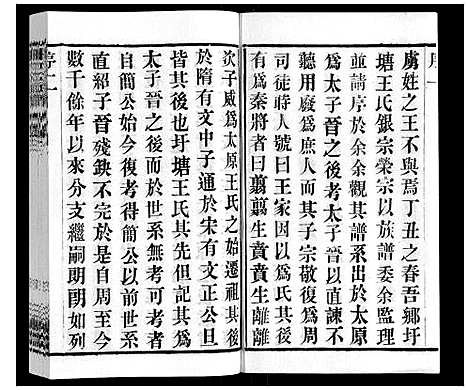 虞姓之王不與焉丁丑之春吾鄉圩
塘王氏銀宗榮宗以族譜委余監理
並請序於余余觀其譜系出於太原
爲太子晉之後考太子晉以直諫不
聽用廢爲庶人而其子宗敬復爲周
司徒時人號曰王家因以爲氏其後
有爲秦將者曰翦翦生賁賁生離離
次子威爲太原王氏之始遷祖其後
於隋有文中子通於宋有文正公旦
皆其後也圩塘王氏其先代只知其爲
太子晉之後而於世系無考可稽也
自簡公始今復考得簡公以前世系
直紹子晉殘鈌不完於是自周至今
數千餘年以來分支繼嗣朗朗如列
序二